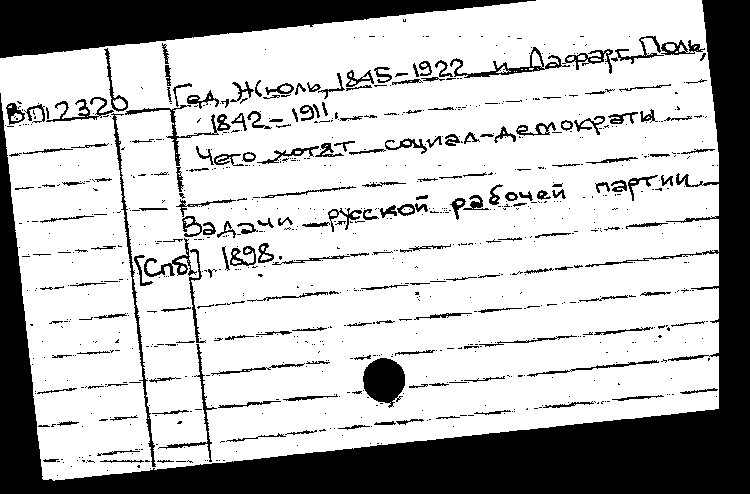 ВП 2320 Гед, Жюль, 1845-1922 и Лафарг, Поль,
1842-1911.
Чего хотят социал-демократы
Задачи русской рабочей партии.
[Спб.], 1898.